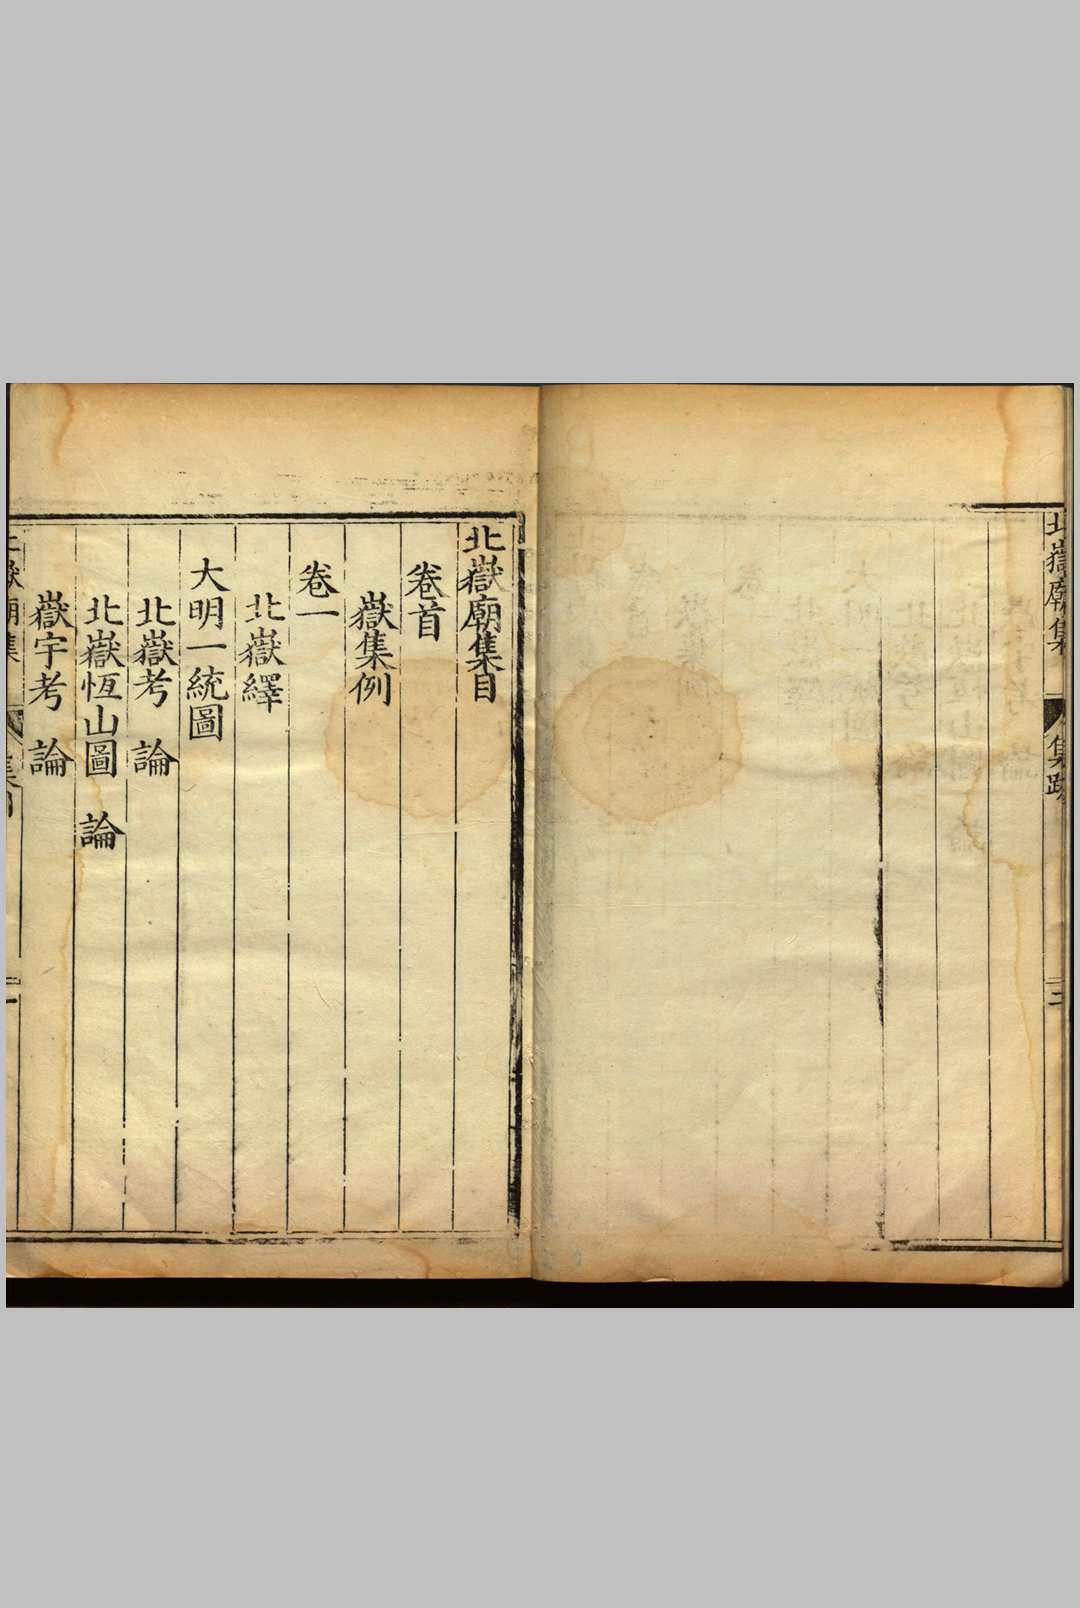 北嶽廟集
集跋
二
北嶽廟集目
卷首
嶽集例
卷一
北嶽繹
大明一統圖
北嶽考　論
北嶽恆山圖　論
嶽宇考　論
北嶽廟集
集目
一